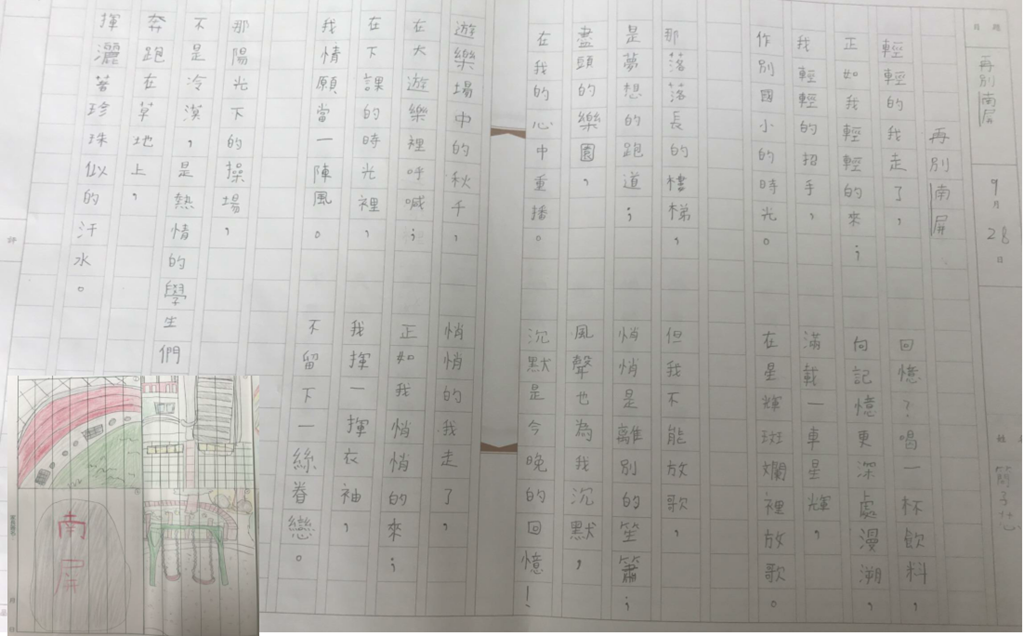 再別南屏
9月28日
再別南屏
輕輕的我走了，
正如我輕輕的來；
我輕輕的招手，
作別國小的時光。
那落落長的樓梯，
是夢想的跑道；
盡頭的樂園，
在我的心中重播。
遊樂場中的秋千，
在大遊樂裡呼喊；
在下課的時光裡，
我情願當一陣風。
那陽光下的操場，
不是冷漠，是熱情的學生們
奔跑在草地上，
揮灑著珍珠似的汗水。
回憶？唱一杯飲料，
向記憶更深處漫溯，
滿載一車星輝，
在星輝斑斕裡放歌。
但我不能放歌，
悄悄是離別的笙簫；
風聲也為我沉默，
沉默是今晚的回憶！
悄悄的我走了，
正如我悄悄的來；
我揮一揮衣袖，
不留下一絲眷戀。
南屏